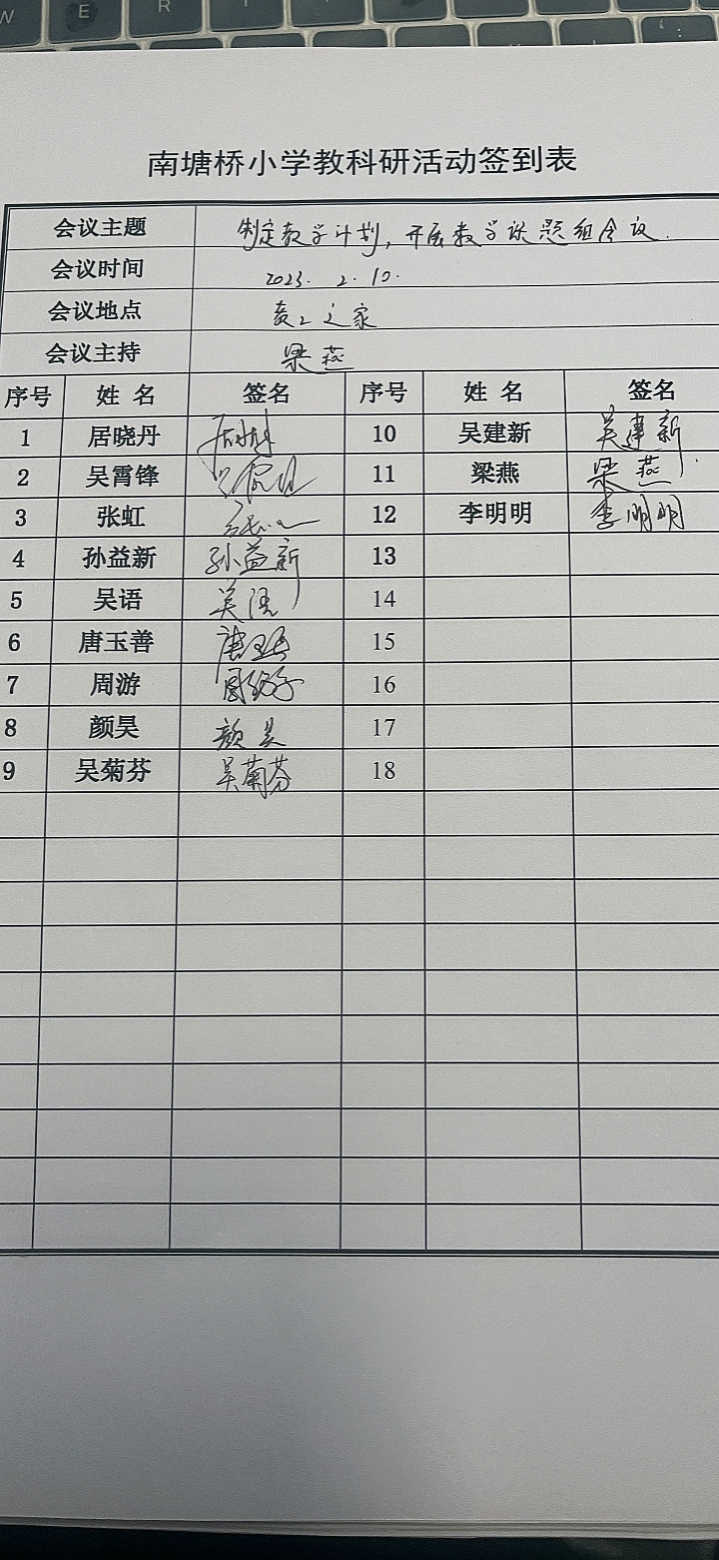 W E R
南塘桥小学教科研活动签到表
会议主题 制定教学计划，开展教学课题组会议.
会议时间 2023. 2. 10.
会议地点 教工之家
会议主持 梁燕
序号 姓 名 签名 序号 姓 名 签名
1 居晓丹 10 吴建新 吴建新
2 吴霄锋 11 梁燕 梁燕
3 张虹 12 李明明 李明明
4 孙益新 孙益新 13
5 吴语 吴语 14
6 唐玉善 唐玉善 15
7 周游 周游 16
8 颜昊 颜昊 17
9 吴菊芬 吴菊芬 18